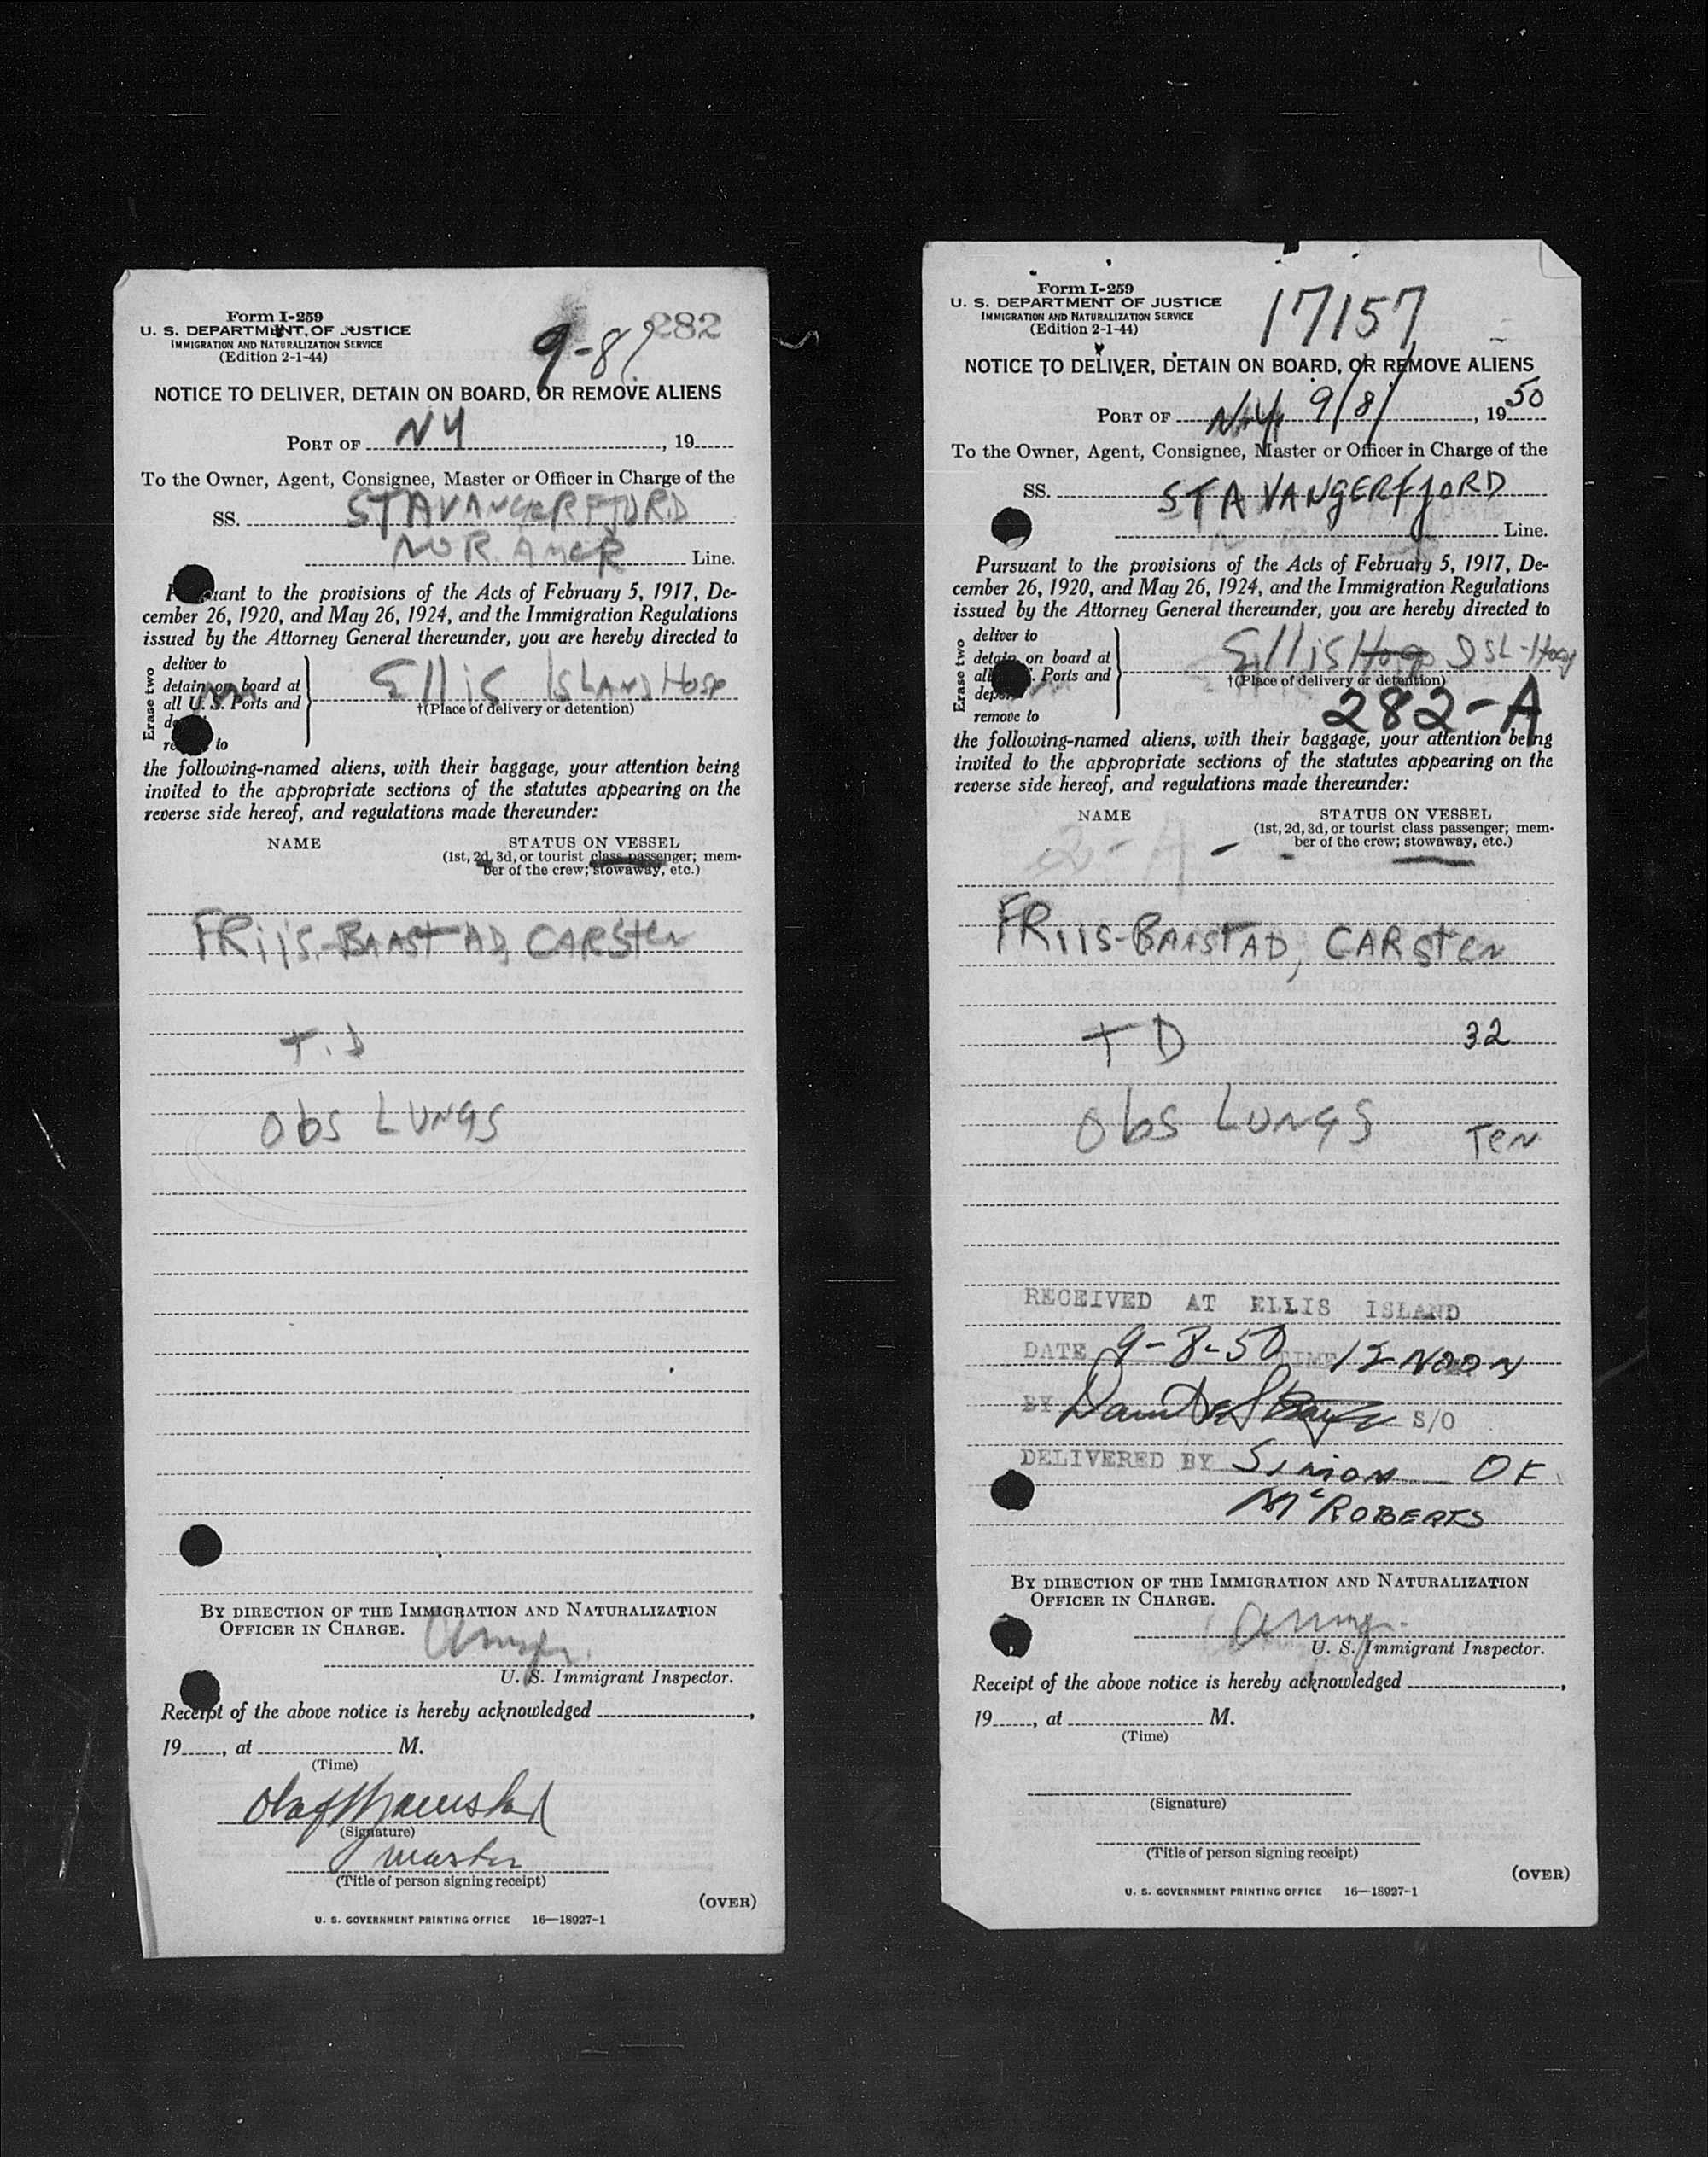 Form I-259
U. S. DEPARTMENT OF JUSTICE
IMMIGRATION AND NATURALIZATION SERVICE
(Edition 2-1-44)
282
9-8
NOTICE TO DELIVER, DETAIN ON BOARD, OR REMOVE ALIENS
PORT OF NY, 19
To the Owner, Agent, Consignee, Master or Officer in Charge of the
SS. STAVANGERFJORD
NOR. AMER Line.
to the provisions of the Acts of February 5, 1917, De-
cember 26, 1920, and May 26, 1924, and the Immigration Regulations
issued by the Attorney General thereunder, you are hereby directed to
Erase two
deliver to
detain on board at
all U.S. Ports and
to
Ellis ISLAND Hosp
†(Place of delivery or detention)
the following-named aliens, with their baggage, your attention being
invited to the appropriate sections of the statutes appearing on the
reverse side hereof, and regulations made thereunder:
NAME STATUS ON VESSEL
(1st, 2d, 3d, or tourist class passenger; mem-
ber of the crew; stowaway, etc.)
FRiiS-BAASTAD, CARSten
T.D
Obs LUNGS
BY DIRECTION OF THE IMMIGRATION AND NATURALIZATION
OFFICER IN CHARGE.
U. S. Immigrant Inspector.
Receipt of the above notice is hereby acknowledged ,
19 , at M.
(Time)
Olaf
(Signature)
master
(Title of person signing receipt)
(OVER)
U. S. GOVERNMENT PRINTING OFFICE 16—18927-1
Form I-259
U. S. DEPARTMENT OF JUSTICE
IMMIGRATION AND NATURALIZATION SERVICE
(Edition 2-1-44)
17157
NOTICE TO DELIVER, DETAIN ON BOARD, OR REMOVE ALIENS
PORT OF N.Y. 9/8/, 1950
To the Owner, Agent, Consignee, Master or Officer in Charge of the
SS. STAVANGERfjORD
Line.
Pursuant to the provisions of the Acts of February 5, 1917, De-
cember 26, 1920, and May 26, 1924, and the Immigration Regulations
issued by the Attorney General thereunder, you are hereby directed to
Erase two
deliver to
detain on board at
Ports and
remove to
Ellis Hosp ISL-Hosp
†(Place of delivery or detention)
282-A
the following-named aliens, with their baggage, your attention being
invited to the appropriate sections of the statutes appearing on the
reverse side hereof, and regulations made thereunder:
NAME STATUS ON VESSEL
(1st, 2d, 3d, or tourist class passenger; mem-
ber of the crew; stowaway, etc.)
2-A
FRiiS-BAASTAD, CARSten
TD 32
Obs LUNGS Ten
RECEIVED AT ELLIS ISLAND
DATE 9-8-50 TIME 12 NOON
BY S/O
DELIVERED BY SIMON OF
McROBERTS
BY DIRECTION OF THE IMMIGRATION AND NATURALIZATION
OFFICER IN CHARGE.
U. S. Immigrant Inspector.
Receipt of the above notice is hereby acknowledged ,
19 , at M.
(Time)
(Signature)
(Title of person signing receipt)
(OVER)
U. S. GOVERNMENT PRINTING OFFICE 16—18927-1